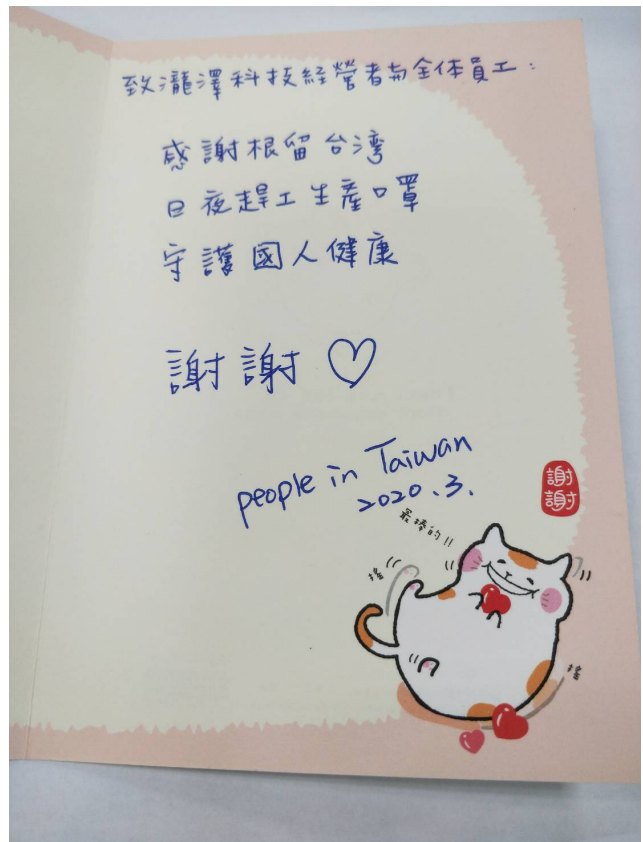 致瀧澤科技經營者与全体員工：
感謝根留台湾
日夜趕工生產口罩
守護國人健康
謝謝♡
people in Taiwan
2020.3.
謝謝
最棒的!!
搖
搖